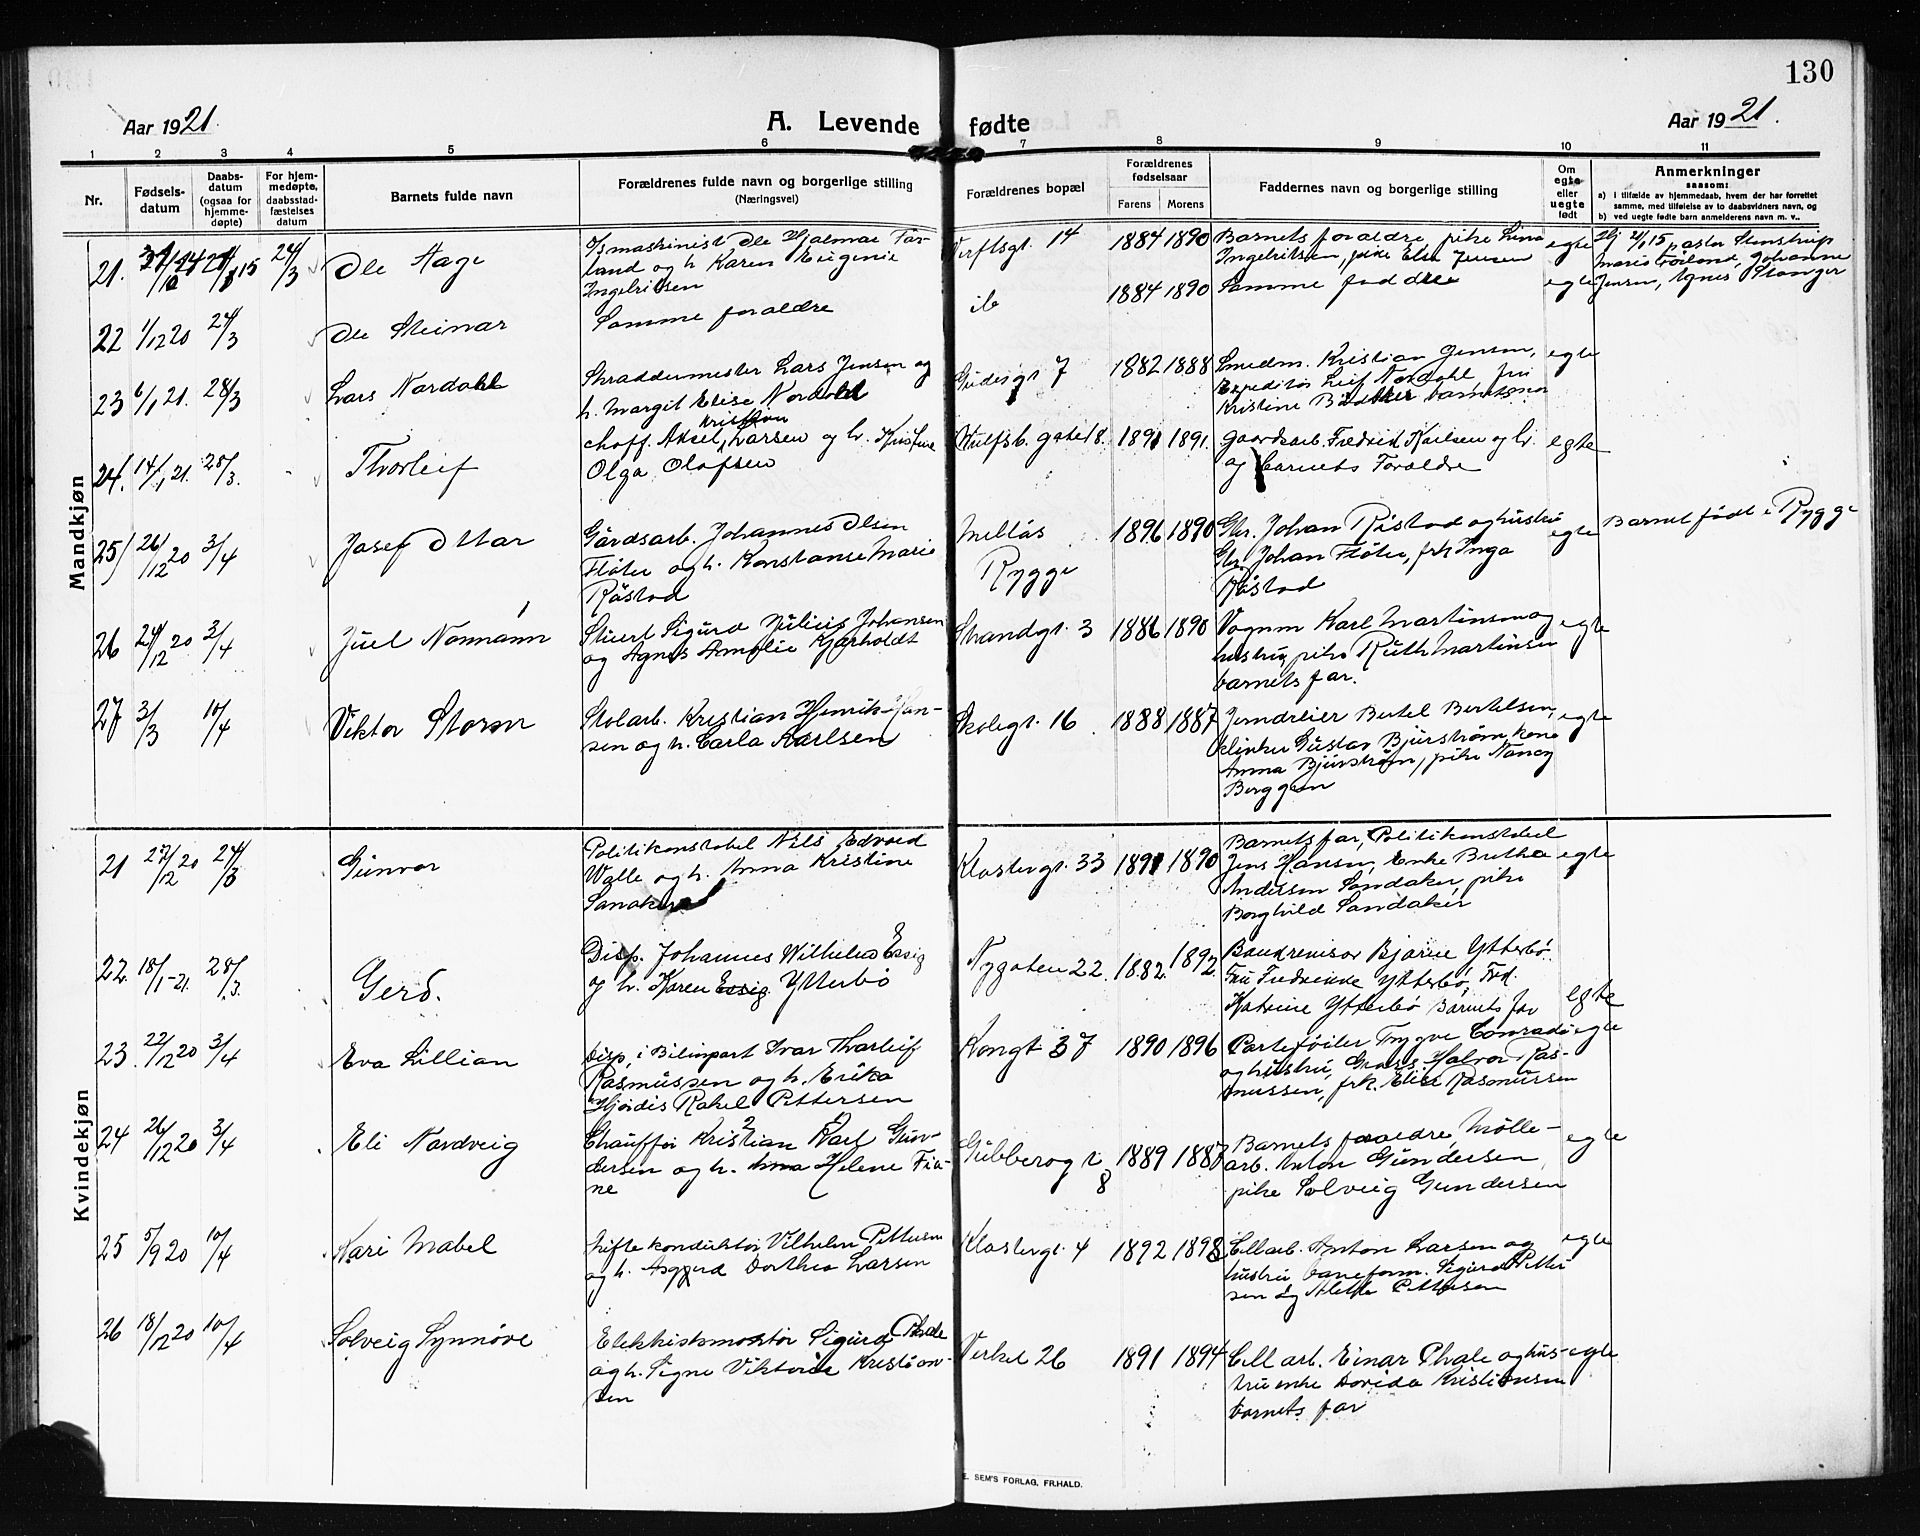 130
Aar 1921.
A. Levende fødte
Aar 1921.
1 2 3 4 5 6 7 8 9 10 11
Nr.
Fødsels-
datum
Daabs-
datum
(ogsaa for
hjemme-
døpte)
For hjem-
medøpte,
daabsstad-
fæstelses
datum
Barnets fulde navn
Forældrenes fulde navn og borgerlige stilling
(Næringsvei)
Forældrenes bopæl
Forældrenes
fødselsaar
Farens Morens
Faddernes navn og borgerlige stilling
Om
egte
eller
uegte
født
Anmerkninger
saasom:
a) i tilfælde av hjemmedaab, hvem der har forrettet
samme, med tilføielse av to daabsvidners navn, og
b) ved uegte fødte barn anmelderens navn m. v..
Mandkjøn
21. 24/3 Ole Aage
maskinist Ole Hjalmar
land og h. Karen Eugenie
Ingebritsen
Verftsgt. 14 1884 1890
Barnets foraldre, pike
Ingebritsen, pike Else Jensen
egte
pastor Stenstrup
Johanne
Jensen, Agnes Stanger
22 1/12 20 24/3 Ole Steinar
Samme foraldre
ib 1884 1890 Samme faddre egte
23 6/1 21. 28/3 Lars Nordahl
Skraddermester Lars Jensen og
h. Margit Elise Nordahl
Gudesgt 7 1882 1888
Smedm. Kristian Jensen,
Expeditør Leif Nordahl fru
Kristine Bødtker barnets mor
egte
24. 14/1 21. 28/3. Thorleif
Kristian
choff. Aksel Larsen og h. Kristine
Olga Olafsen
Wulfsb. gate 18. 1891 1891.
gaardsarb. Fredrik Karlsen og h.
og barnets Foraldre
egte
25) 26/12 20 3/4 Josef Ottar
Gårdsarb. Johannes Olsen
Fløter og h. Konstanse Marie
Råstad
Melløs
Rygge
1896 1890
Gbr. Johan Råstad og hustru
Gbr. Johan Fløter, frk Inga
Råstad
egte
Barnet født i Rygge
26 24/12 20 3/4 Juel Normann
Stuert Sigurd Julius Johansen
og Agnes Amalie Kjærholdt
Strandgt. 3 1886 1890
Vognm Karl Martinsen og
hustru, pike Ruth Martinsen
barnets far.
egte
27 3/3 10/4 Viktor Storm
Stolarb. Kristian Henrik Han-
sen og h. Carla Karlsen
Skolegt. 16 1888 1887
Jerndreier Bertel Bertelsen,
klinker Gustav Bjurstrøm, kone
Anna Bjurstrøm, pike Nancy
Berggren
egte
Kvindekjøn
21 27/12 20 24/3 Gunvor
Politikonstabel Nils Edvard
Walle og h. Anna Kristine
Klostergt. 33 1891 1890
Barnets far, Politikonstabel
Jens Hansen, Enke Bertha
Andersen Sandaker, pike
Borghild Sandaker
egte
22. 18/1-21. 28/3. Gerd.
Disp. Johannes Wilhelm Essig
og h. Karen Essig Ytterbø
Nygaten 22. 1882. 1892.
Bankrevisor Bjarne Ytterbø
Fru Fredrikke Ytterbø, Frk.
Katrine Ytterbø Barnets far
egte
23. 22/12 20 3/4 Eva Lillian
Disp. i Bilimport Ivar Thorleif
Rasmussen og h. Erika
Hjørdis Rakel Pettersen
Kongt 37 1890 1896
Parteføiler Trygve Conradi
og hustru, Gross. Halvor Ras-
mussen, frk. Elise Rasmussen
egte
24 26/12 20 3/4 Eli Nordveig
Chauffør Kristian Karl Gun-
dersen og h. Anna Helene Fia-
ne
Gubberogt.
8
1889 1887
Barnets foraldre, Mølle-
arb. Anton Gundersen,
pike Solveig Gundersen
egte
25 5/9 20 10/4 Kari Mabel
konduktør Vilhelm Pettersen
og h. Asgjerd Dorthea Larsen
Klostergt. 4 1892 1898
Cellarb. Anton Larsen og
hustru baneform. Sigurd Petter
sen og Alette Pettersen
egte
26 18/12 20 10/4 Solveig Synnøve
Elektriskmontør Sigurd Phale
og h. Signe Viktoria Kristian-
sen
Verket 26 1891 1894
Cell arb. Einar Phale og hus-
tru enke Dorida Kristiansen
barnets far
egte
E. SEM'S FORLAG, FR.HALD.